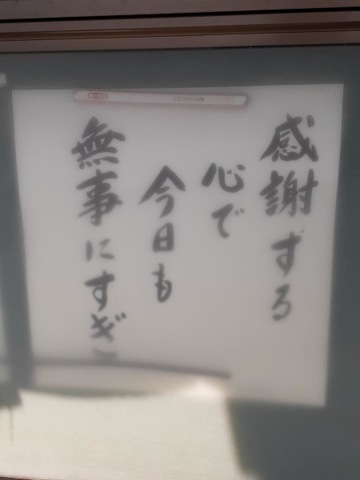 感謝する
心で
今日も
無事にすぎ